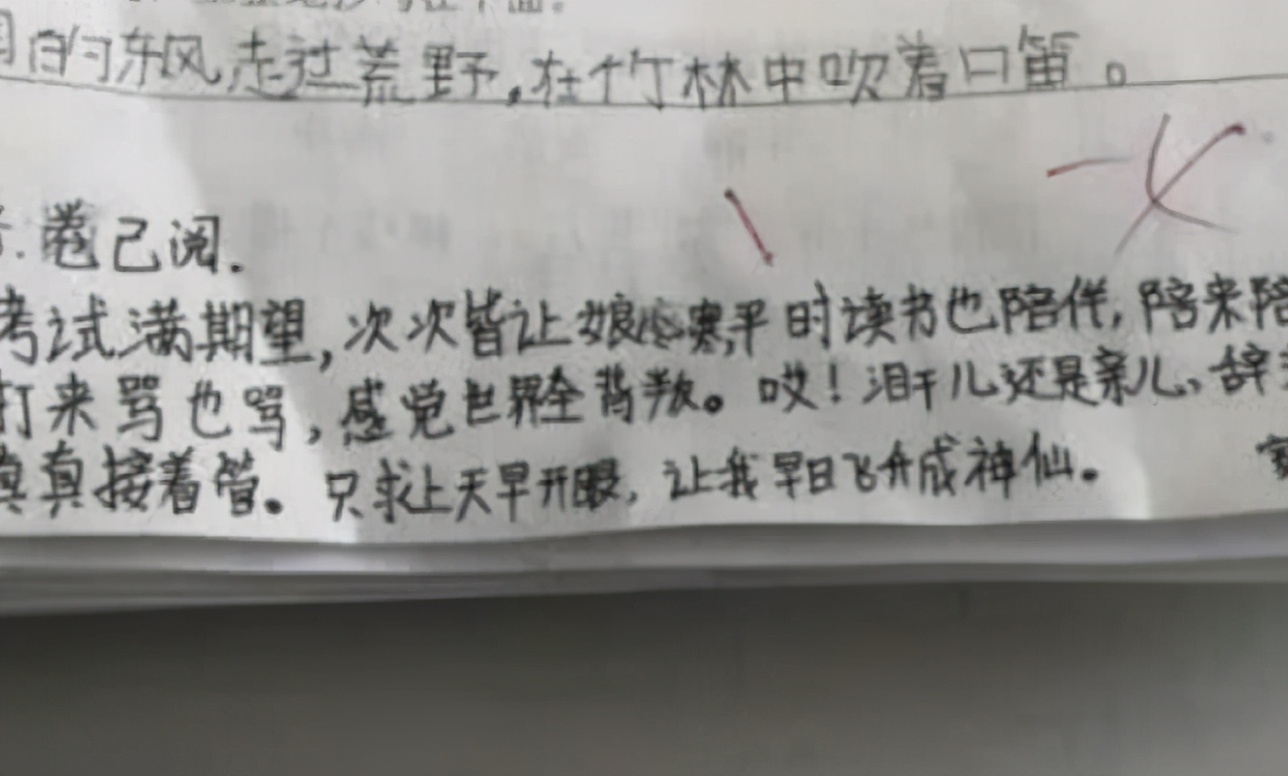 的东风走过荒野,在竹林中吹着口笛。
卷已阅.
考试满期望,次次皆让娘心寒,平时读书也陪伴,陪来陪
打来骂也骂,感觉世界全背叛。哎!泪干儿还是亲儿、辞
真真接着管。只求上天早开眼,让我早日飞升成神仙。